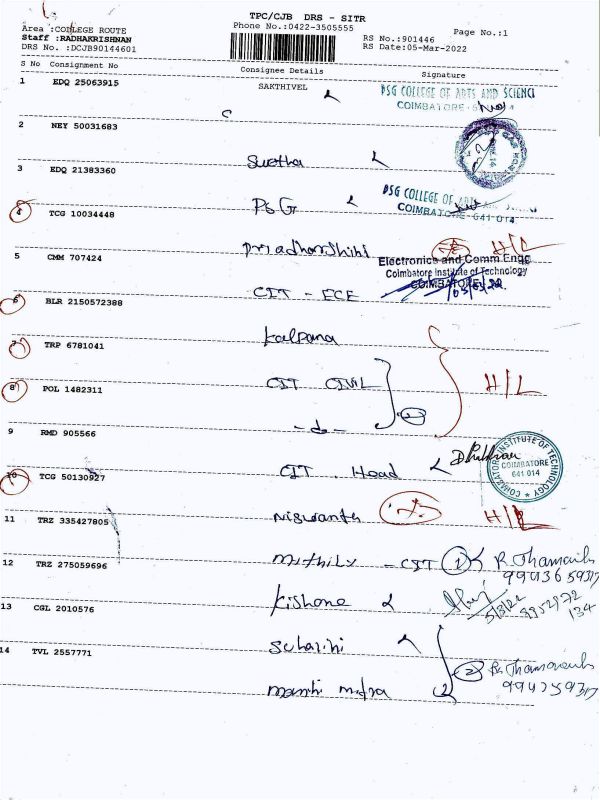 TPC/CJB DRS - SITR
Area :COLLEGE ROUTE
Phone No.:0422-3505555
Page No.:1
Staff :RADHAKRISHNAN
RS No.:901446
DRS No. :DCJB90144601
RS Date:05-Mar-2022
S No Consignment No Consignee Details Signature
1 EDQ 25063915 SAKTHIVEL
PSG COLLEGE OF ARTS AND SCIENC
COIMBATORE
2 NEY 50031683
Swetha
3 EDQ 21383360
PSG
PSG COLLEGE OF ARTS
COIMBATORE 641 014
4 TCG 10034448
Priyadharshini H/L
5 CMM 707424
Electronics and Comm Engg
Coimbatore Institute of Technology
COIMBATORE
CIT - ECE
6 BLR 2150572388
Kalpana
7 TRP 6781041
CIT CIVIL H/L
8 POL 1482311
-do-
9 RMD 905566
CIT. Head
COIMBATORE INSTITUTE OF TECHNOLOGY
COIMBATORE
641 014
10 TCG 50130927
Niswanth H/L
11 TRZ 335427805
Mythily - CIT 1 R. Thamarai
12 TRZ 275059696
Kishore 5/3/22
13 CGL 2010576
Suharini
14 TVL 2557771
2 R. Thamarai
mitra